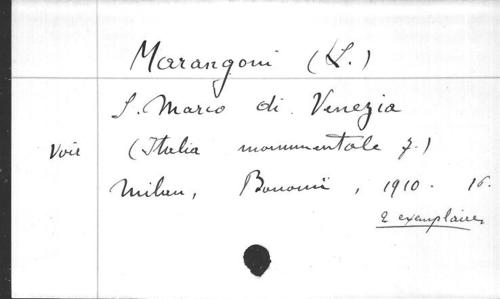 Marangoni (L.)
S. Marco di Venezia
Voir (Italia monumentale 7.)
Milan, Bonomi, 1910. 16.
2 exemplaires